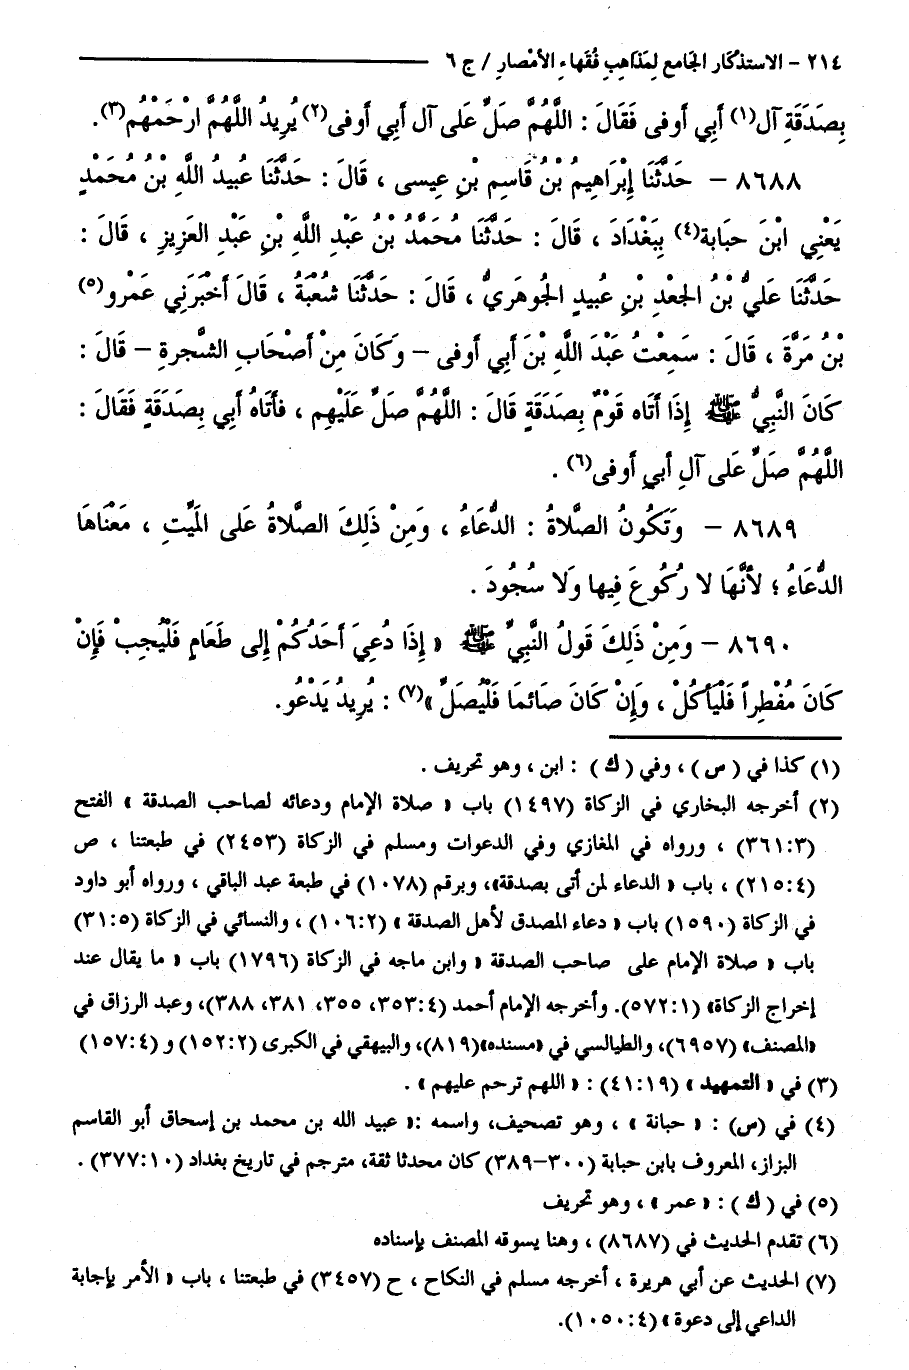 ٢١٤ - الاستذكار الجامع لِمَذَاهِبِ فُقَهاءِ الأمْصارِ / ج ٦
بِصَدَقَةِ آل(١) أَبِي أَوفى فَقَالَ : اللَّهُمَّ صَلِّ عَلى آل أَبِي أَوفى(٢) يُرِيدُ اللَّهُمَّ ارْحَمْهُم(٣).
٨٦٨٨ – حَدَّثَنَا إِبْرَاهِيمُ بْنُ قَاسِمِ بْنِ عِيسى ، قَالَ : حَدَّثَنَا عُبيدُ اللَّهِ بْنُ مُحَمَّدٍ
يَعْنِي ابْنَ حبَابة(٤) بِبَغْدَادَ ، قَالَ : حَدَّثَنَا مُحَمَّدُ بْنُ عَبْدِ اللَّهِ بْنِ عَبْدِ العَزِيزِ ، قَالَ :
حَدَّثَنَا عَليُّ بْنُ الجَعدِ بْنِ عُبيدٍ الجُوهَرِيُّ ، قَالَ : حَدَّثَنَا شُعْبَةُ ، قَالَ أَخْبَرَنِي عَمْرو(٥)
بْنُ مَرَّةَ ، قَالَ : سَمِعْتُ عَبْدَ اللَّهِ بْنَ أَبِي أَوفى – وَكَانَ مِنْ أَصْحَابِ الشَّجرةِ – قَالَ :
كَانَ النَّبِيُّ ﷺ إِذَا أَتَاه قَوْمٌ بِصَدَقَةٍ قَالَ : اللَّهُمَّ صَلِّ عَلَيْهِم ، فأَتَاهُ أَبِي بِصَدَقَةٍ فَقَالَ :
اللَّهُمَّ صَلِّ عَلى آلِ أَبِي أَوفى(٦) .
٨٦٨٩ – وَتَكُونُ الصَّلاةُ : الدُّعَاءُ ، وَمِنْ ذَلِكَ الصَّلاةُ عَلى المَيِّتِ ، مَعْنَاهَا
الدُّعَاءُ ؛ لأَنَّهَا لا رُكُوعَ فِيها وَلا سُجُودَ .
٨٦٩٠ – وَمِنْ ذَلِكَ قَولُ النَّبِيِّ ﷺ « إِذَا دُعِيَ أَحَدُكُمْ إِلى طَعَامٍ فَلْيُجِبْ فَإِنْ
كَانَ مُفْطِراً فَلْيَأْكُلْ ، وَإِنْ كَانَ صَائمَا فَلْيُصَلِّ »(٧) : يُرِيدُ يَدْعُو.
(١) كذا في (س) ، وفي (ك) : ابن ، وهو تحريف .
(٢) أخرجه البخاري في الزكاة (١٤٩٧) باب « صلاة الإمام ودعائه لصاحب الصدقة » الفتح
(٣٦١:٣) ، ورواه في المغازي وفي الدعوات ومسلم في الزكاة (٢٤٥٣) في طبعتنا ، ص
(٢١٥:٤) ، باب « الدعاء لمن أتى بصدقة»، وبرقم (١٠٧٨) في طبعة عبد الباقي ، ورواه أبو داود
في الزكاة (١٥٩٠) باب « دعاء المصدق لأهل الصدقة » (١٠٦:٢) ، والنسائي في الزكاة (٣١:٥)
باب « صلاة الإمام على صاحب الصدقة « وابن ماجه في الزكاة (١٧٩٦) باب « ما يقال عند
إخراج الزكاة» (٥٧٢:١). وأخرجه الإمام أحمد (٣٥٣:٤، ٣٥٥، ٣٨١، ٣٨٨)، وعبد الرزاق في
«المصنف» (٦٩٥٧)، والطيالسي في «مسنده»(٨١٩)، والبيهقي في الكبرى (١٥٢:٢) و (١٥٧:٤)
(٣) في « التمهيد » (٤١:١٩) : « اللهم ترحم عليهم » .
(٤) في (س) : « حبانة » ، وهو تصحيف، واسمه :« عبيد الله بن محمد بن إسحاق أبو القاسم
البزاز، المعروف بابن حبابة (٣٠٠-٣٨٩) كان محدثا ثقة، مترجم في تاريخ بغداد (٣٧٧:١٠) .
(٥) في ( ك ) : « عمر » ، وهو تحريف
(٦) تقدم الحديث في (٨٦٨٧) ، وهنا يسوقه المصنف بإسناده
(٧) الحديث عن أبي هريرة ، أخرجه مسلم في النكاح ، ح (٣٤٥٧) في طبعتنا ، باب « الأمر بإجابة
الداعي إلى دعوة » (١٠٥٠:٤).